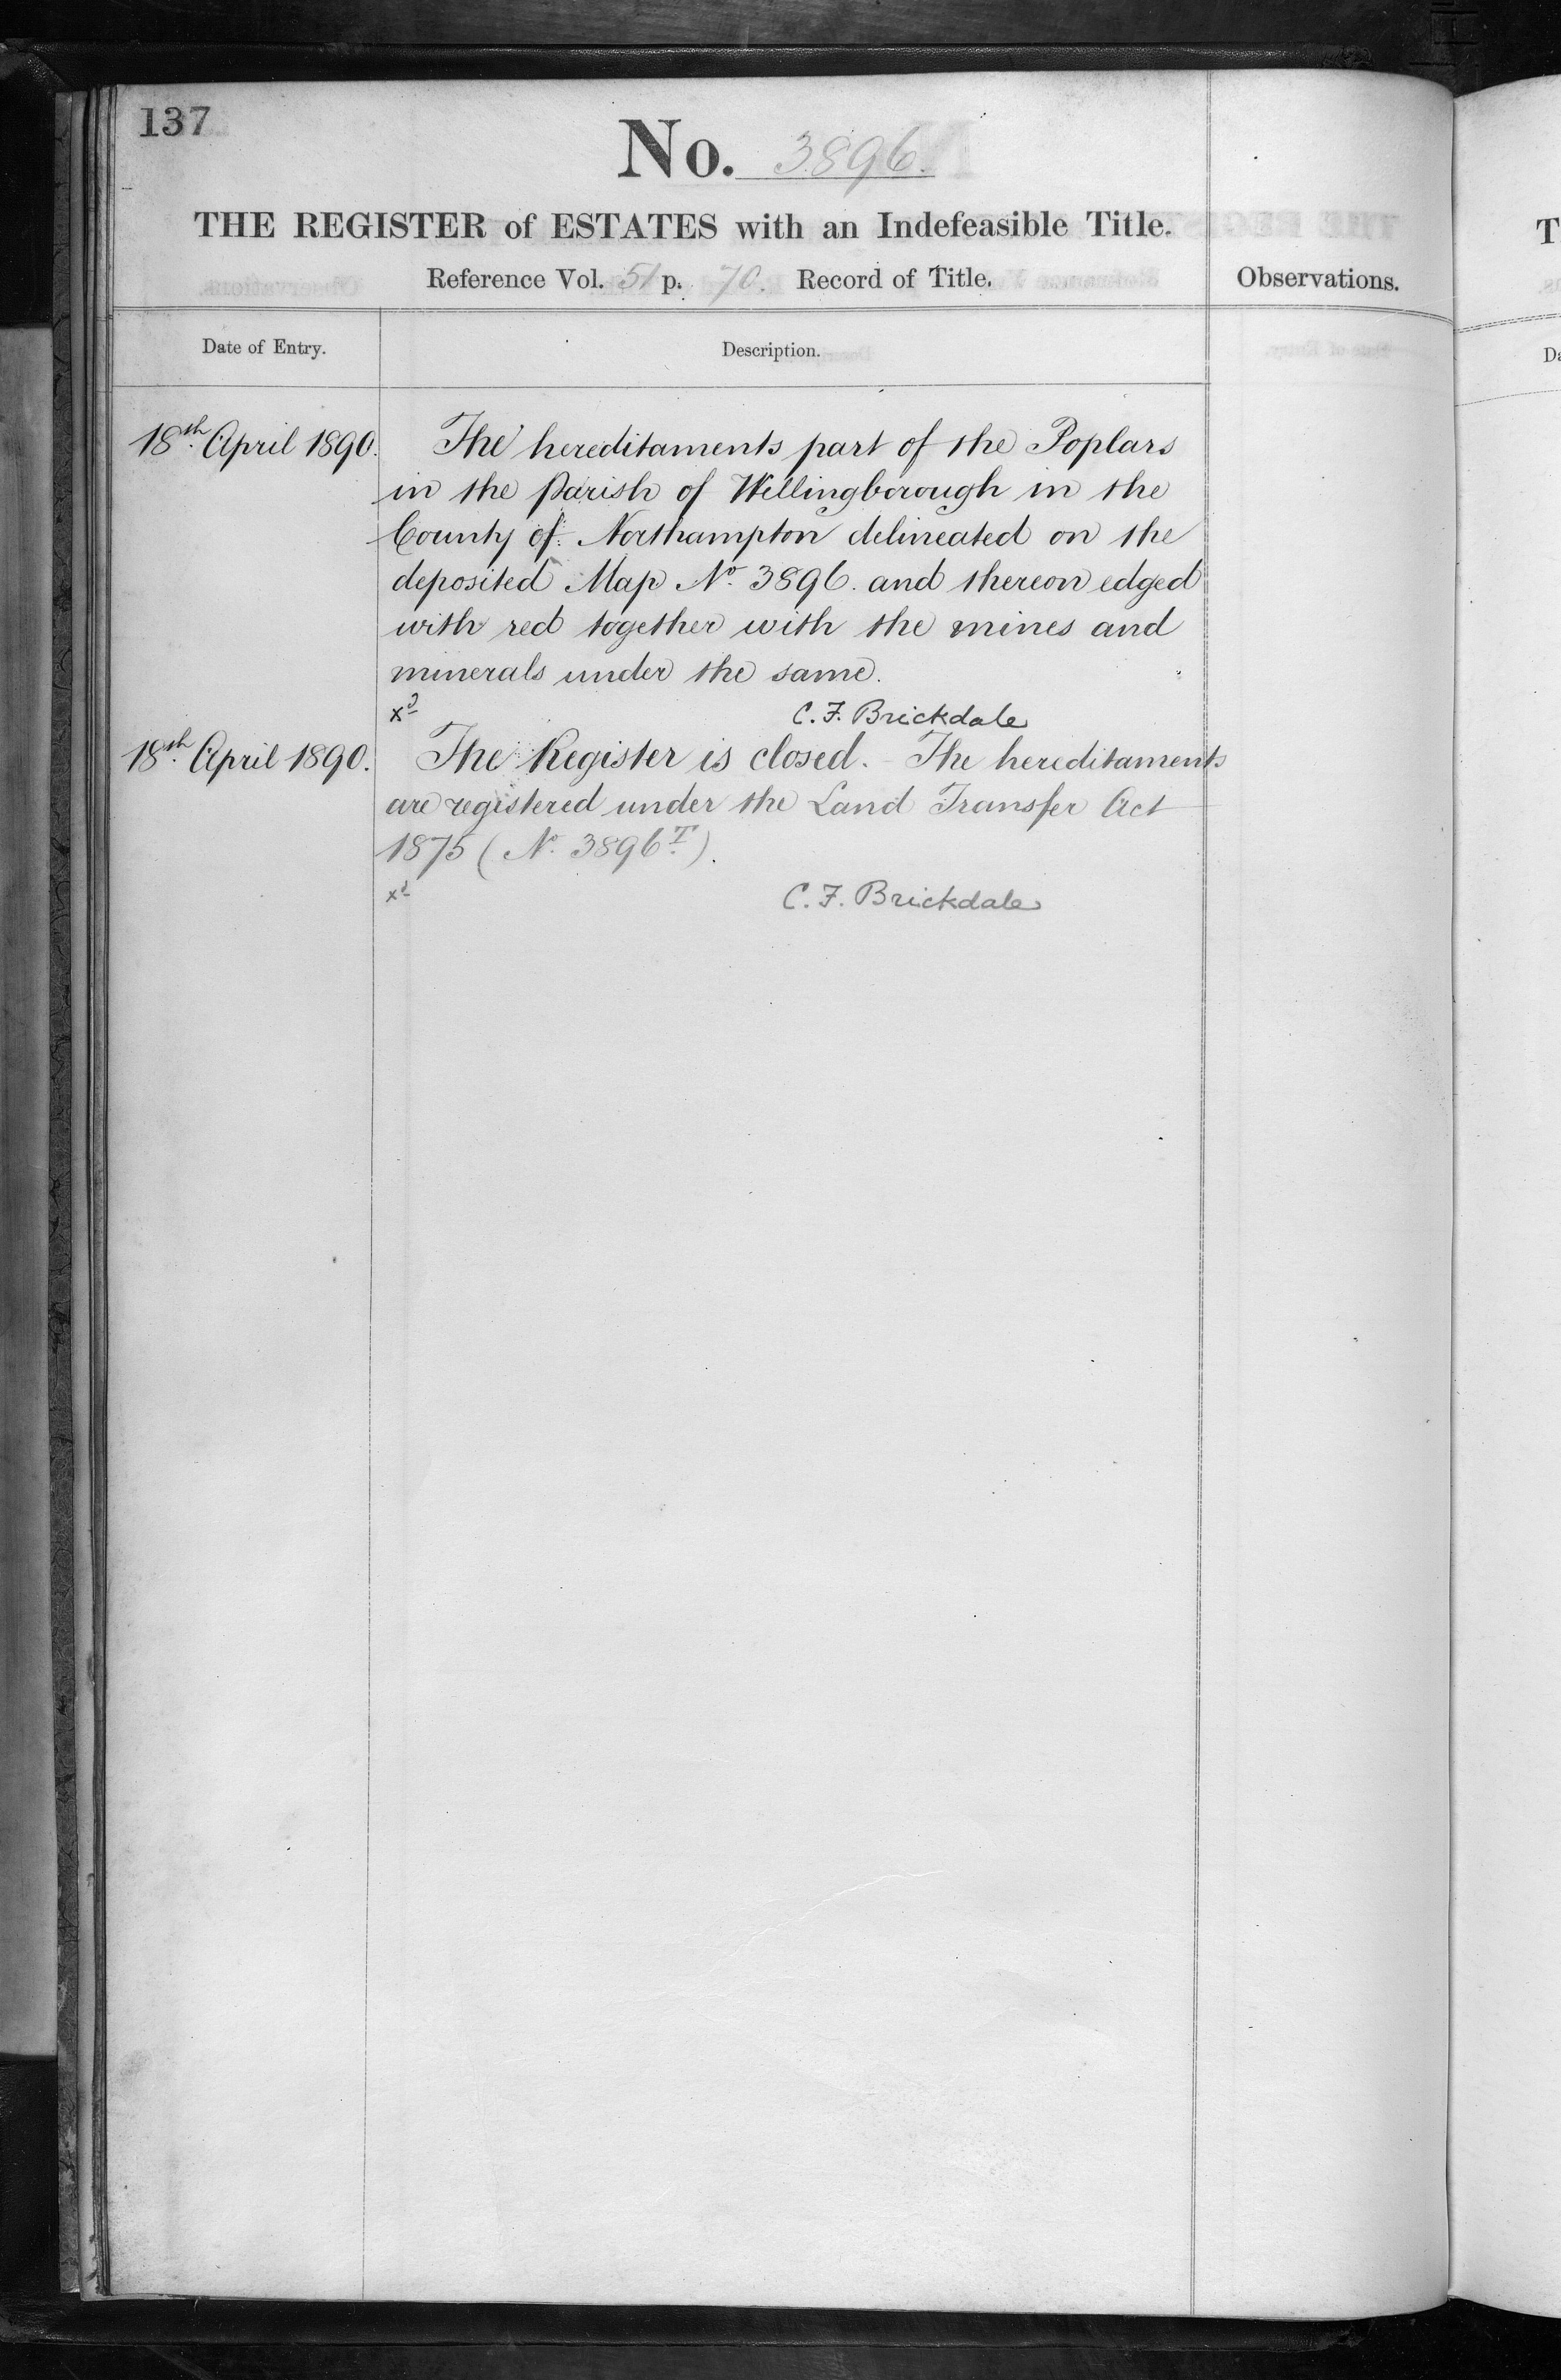 137
No. 3896.
THE REGISTER of ESTATES with an Indefeasible Title.
Reference Vol. 51 p. 70. Record of Title.
Observations.
Date of Entry.
Description.
18th April 1890.
The hereditaments part of the Poplars
in the Parish of Wellingborough in the
County of Northampton delineated on the
deposited Map No. 3896. and thereon edged
with red together with the mines and
minerals under the same.
xd
C. F. Brickdale
18th April 1890.
The Register is closed. - The hereditaments
are registered under the Land Transfer Act
1875 (No. 3896T).
xd
C. F. Brickdale
T
Da